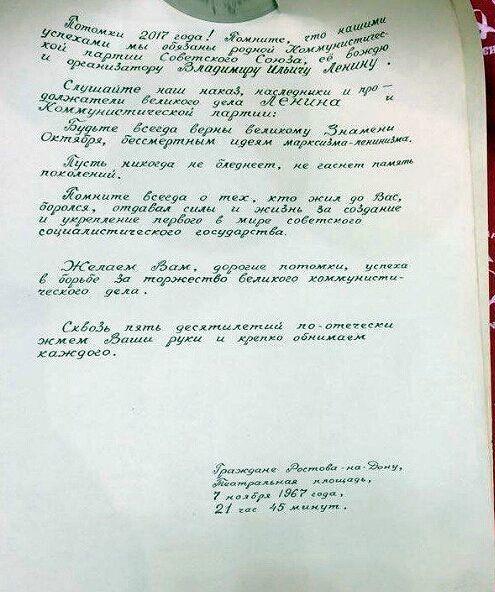 Потомки 2017 года! Помните, что нашими
успехами мы обязаны родной Коммунистичес-
кой партии Советского Союза, её вождю
и организатору Владимиру Ильичу Ленину.
Слушайте наш наказ, наследники и про-
должатели великого дела Ленина и
Коммунистической партии:
Будьте всегда верны великому Знамени
Октября, бессмертным идеям марксизма-ленинизма.
Пусть никогда не бледнеет, не гаснет память
поколений.
Помните всегда о тех, кто жил до Вас,
боролся, отдавал силы и жизнь за создание
и укрепление первого в мире советского
социалистического государства.
Желаем Вам, дорогие потомки, успеха
в борьбе за торжество великого коммунисти-
ческого дела.
Сквозь пять десятилетий по-отечески
жмем Ваши руки и крепко обнимаем
каждого.
Граждане Ростова-на-Дону,
Театральная площадь,
7 ноября 1967 года,
21 час 45 минут.